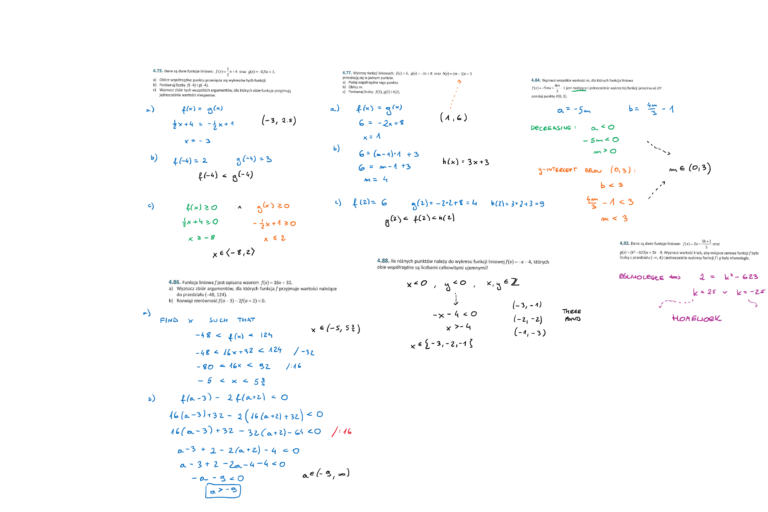 4.75. Dane są dane funkcje liniowe: f(x) = ½x + 4 oraz g(x) = -0,5x + 1.
a) Oblicz współrzędne punktu przecięcia się wykresów tych funkcji.
b) Porównaj liczby f(-4) i g(-4).
c) Wyznacz zbiór tych wszystkich argumentów, dla których obie funkcje przyjmują
jednocześnie wartości nieujemne.
a) f(x) = g(x)
½x + 4 = -½x + 1
x = -3
(-3, 2.5)
b) f(-4) = 2 g(-4) = 3
f(-4) < g(-4)
c) f(x) ≥ 0 ∧ g(x) ≥ 0
½x + 4 ≥ 0 -½x + 1 ≥ 0
x ≥ -8 x ≤ 2
x ∈ ⟨-8, 2⟩
4.77. Wykresy funkcji liniowych: f(x) = 6, g(x) = -2x + 8 oraz h(x) = (m - 1)x + 3
przecinają się w jednym punkcie.
a) Podaj współrzędne tego punktu.
b) Oblicz m.
c) Porównaj liczby f(2), g(2) i h(2).
a) f(x) = g(x)
6 = -2x + 8
x = 1
(1, 6)
b) 6 = (m-1)·1 + 3
6 = m - 1 + 3
m = 4
h(x) = 3x + 3
c) f(2) = 6 g(2) = -2·2 + 8 = 4 h(2) = 3·2 + 3 = 9
g(2) < f(2) < h(2)
4.84. Wyznacz wszystkie wartości m, dla których funkcja liniowa
f(x) = -5mx + 4m/3 - 1 jest malejąca i jednocześnie wykres tej funkcji przecina oś OY
poniżej punktu P(0, 3).
a = -5m b = 4m/3 - 1
DECREASING: a < 0
-5m < 0
m > 0
y-INTERCEPT BELOW (0, 3):
b < 3
4m/3 - 1 < 3
m < 3
m ∈ (0, 3)
4.86. Funkcja liniowa f jest opisana wzorem f(x) = 16x + 32.
a) Wyznacz zbiór argumentów, dla których funkcja f przyjmuje wartości należące
do przedziału (-48, 124).
b) Rozwiąż nierówność f(a - 3) - 2f(a + 2) < 0.
a) FIND x SUCH THAT
-48 < f(x) < 124
-48 < 16x + 32 < 124 /-32
-80 < 16x < 92 /:16
-5 < x < 5¾
x ∈ (-5, 5¾)
b) f(a-3) - 2f(a+2) < 0
16(a-3) + 32 - 2(16(a+2) + 32) < 0
16(a-3) + 32 - 32(a+2) - 64 < 0 /:16
a - 3 + 2 - 2(a+2) - 4 < 0
a - 3 + 2 - 2a - 4 - 4 < 0
-a - 9 < 0
a > -9
a ∈ (-9, ∞)
4.88. Ile różnych punktów należy do wykresu funkcji liniowej f(x) = -x - 4, których
obie współrzędne są liczbami całkowitymi ujemnymi?
x < 0, y < 0, x, y ∈ ℤ
-x - 4 < 0
x > -4
x ∈ {-3, -2, -1}
(-3, -1)
(-2, -2)
(-1, -3)
THERE
2 = k² - 623
k = 25 ∨ k = -25
HOMEWORK